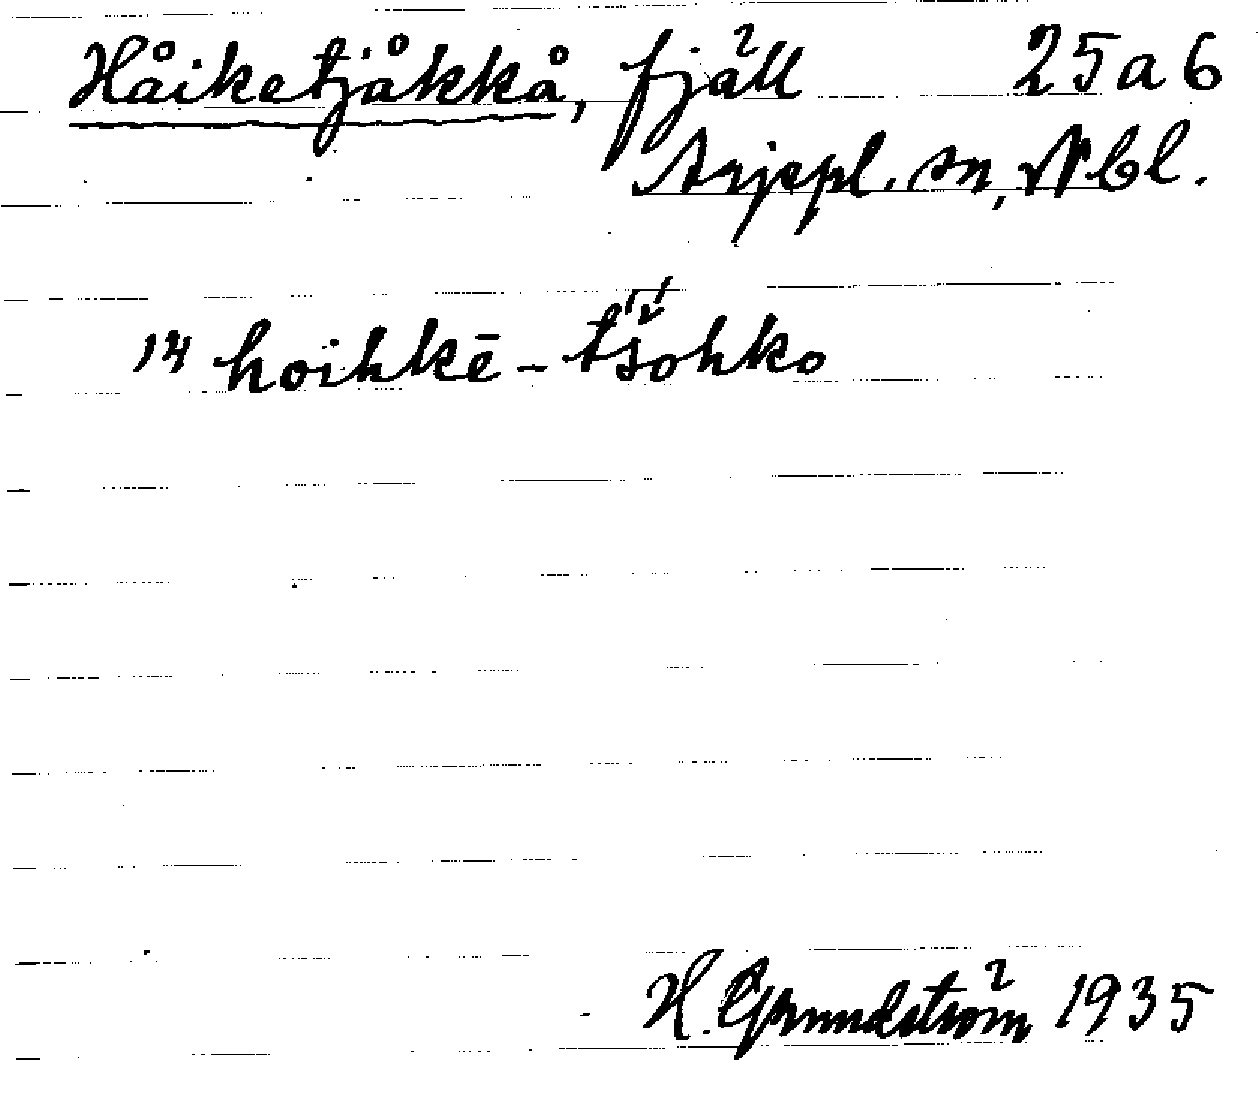 Håiketjåkkå, fjäll 25a6
Arjepl. sn, Nbl.
14 hoihkē-tšohko
H. Grundström 1935